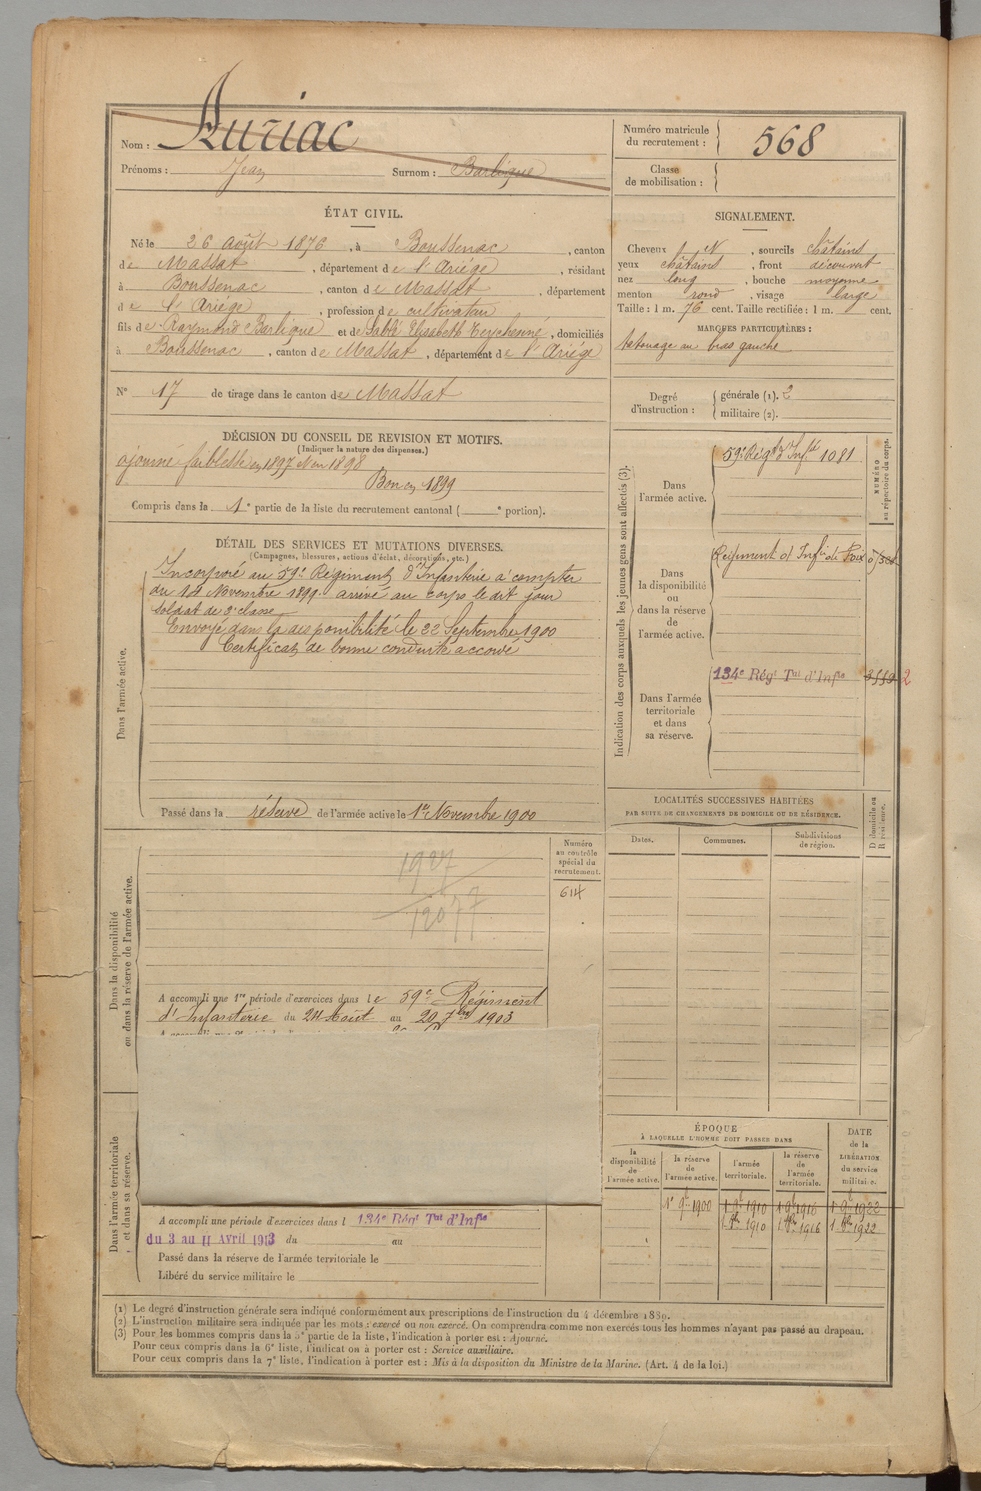 Nom : Auriac
Prénoms : Jean Surnom : Barlique
Numéro matricule du recrutement : 568
Classe de mobilisation :
ÉTAT CIVIL.
Né le 26 Août 1876, à Boussenac, canton
de Massat, département de l'Ariège, résidant
à Boussenac, canton de Massat, département
de l'Ariège, profession de cultivateur
fils de Raymond Barlique et de Elisabeth Teychenné, domiciliés
à Boussenac, canton de Massat, département de l'Ariège
N° 17 de tirage dans le canton de Massat
SIGNALEMENT.
Cheveux N, sourcils châtains
yeux châtains, front découvert
nez long, bouche moyenne
menton rond, visage large
Taille : 1 m. 76 cent. Taille rectifiée : 1 m. cent.
MARQUES PARTICULIÈRES :
tatouage au bras gauche
Degré d'instruction : générale (1). 2
militaire (2).
DÉCISION DU CONSEIL DE REVISION ET MOTIFS.
(Indiquer la nature des dispenses.)
ajourné faiblesse en 1897 et en 1898
Bon en 1899
Compris dans la 1e partie de la liste du recrutement cantonal ( e portion).
DÉTAIL DES SERVICES ET MUTATIONS DIVERSES.
(Campagnes, blessures, actions d'éclat, décorations, etc.)
Dans l'armée active.
Incorporé au 59e Régiment d'Infanterie à compter
du 14 Novembre 1899 arrivé au corps le dit jour
soldat de 2e classe
Envoyé dans la disponibilité le 22 Septembre 1900
Certificat de bonne conduite accordé
Passé dans la réserve de l'armée active le 1er Novembre 1900
Indication des corps auxquels les jeunes gens sont affectés (3).
NUMÉRO au répertoire du corps.
Dans l'armée active.
59e Régt d'Infie 1081
Dans la disponibilité ou dans la réserve de l'armée active.
Régiment d'Infie de Foix
Dans l'armée territoriale et dans sa réserve.
134e Régt Tal d'Infie
LOCALITÉS SUCCESSIVES HABITÉES
PAR SUITE DE CHANGEMENTS DE DOMICILE OU DE RÉSIDENCE.
Dates. Communes. Subdivisions de région. Domicile ou Résidence.
Dans la disponibilité ou dans la réserve de l'armée active.
Numéro au contrôle spécial du recrutement.
614
1927
12077
A accompli une 1re période d'exercices dans le 59e Régiment
d'Infanterie du 24 Août au 20 7bre 1903
Dans l'armée territoriale et dans sa réserve.
A accompli une période d'exercices dans l 134e Régt Tal d'Infie
du 3 au 11 Avril 1913 du au
Passé dans la réserve de l'armée territoriale le
Libéré du service militaire le
ÉPOQUE
À LAQUELLE L'HOMME DOIT PASSER DANS
la disponibilité de l'armée active.
la réserve de l'armée active.
l'armée territoriale.
la réserve de l'armée territoriale.
DATE de la LIBÉRATION du service militaire.
1er 9bre 1900 1. 9bre 1910 1. 9bre 1916 1. 9bre 1922
1. 8bre 1910 1. 8bre 1916 1. 8bre 1922
(1) Le degré d'instruction générale sera indiqué conformément aux prescriptions de l'instruction du 4 décembre 1889.
(2) L'instruction militaire sera indiquée par les mots : exercé ou non exercé. On comprendra comme non exercés tous les hommes n'ayant pas passé au drapeau.
(3) Pour les hommes compris dans la 5e partie de la liste, l'indication à porter est : Ajourné.
Pour ceux compris dans la 6e liste, l'indication à porter est : Service auxiliaire.
Pour ceux compris dans la 7e liste, l'indication à porter est : Mis à la disposition du Ministre de la Marine. (Art. 4 de la loi.)